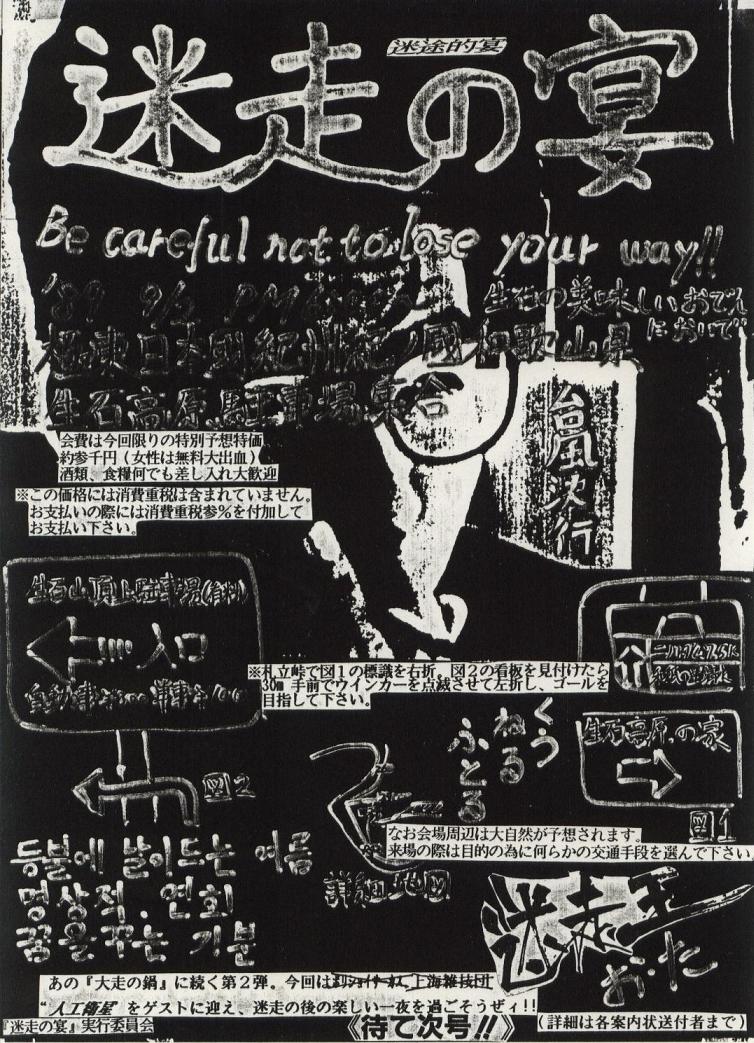 迷途的宴
迷走の宴
Be careful not to lose your way!!
'89 9/2 PM
生石の美味しいおでん
において
極東日本國紀州紀ノ國和歌山県
生石高原駐車場集合
会費は今回限りの特別予想特価
約参千円（女性は無料大出血）
酒類、食糧何でも差し入れ大歓迎
※この価格には消費重税は含まれていません。
お支払いの際には消費重税参%を付加して
お支払い下さい。
台風決行
生石山頂上駐車場(有料)
入口
自動車
図2
※札立峠で図1の標識を右折、図2の看板を見付けたら
30m 手前でウインカーを点滅させて左折し、ゴールを
目指して下さい。
くう
ねる
ふとる
生石高原の家
図1
なお会場周辺は大自然が予想されます。
来場の際は目的の為に何らかの交通手段を選んで下さい
詳細地図
등불에 날아드는 여름
명상적. 연회
꿈을 꾸는 기분
迷走王
お・た
あの『大走の鍋』に続く第2弾。今回は 上海雑技団
"人工衛星"をゲストに迎え、迷走の後の楽しい一夜を過ごそうぜィ!!
『迷走の宴』実行委員会
《待て次号!!》
(詳細は各案内状送付者まで)